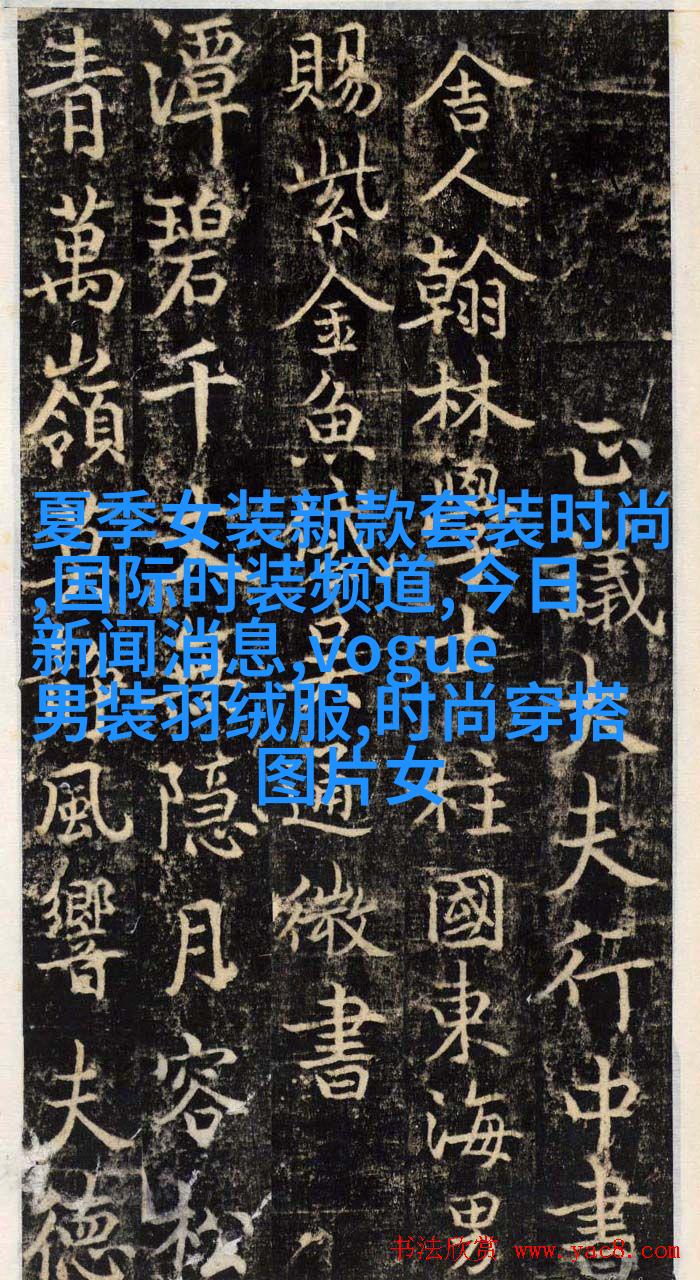 夏季女装新款套装时尚
,国际时装频道,今日
新闻消息,vogue
男装羽绒服,时尚穿搭
图片女
正議大夫行中書
舍人翰林學士柱國東海男
賜紫金魚袋吳通微書
潭碧千隱月容松
青萬嶺風響夫德
书法欣赏 www.yac8.com